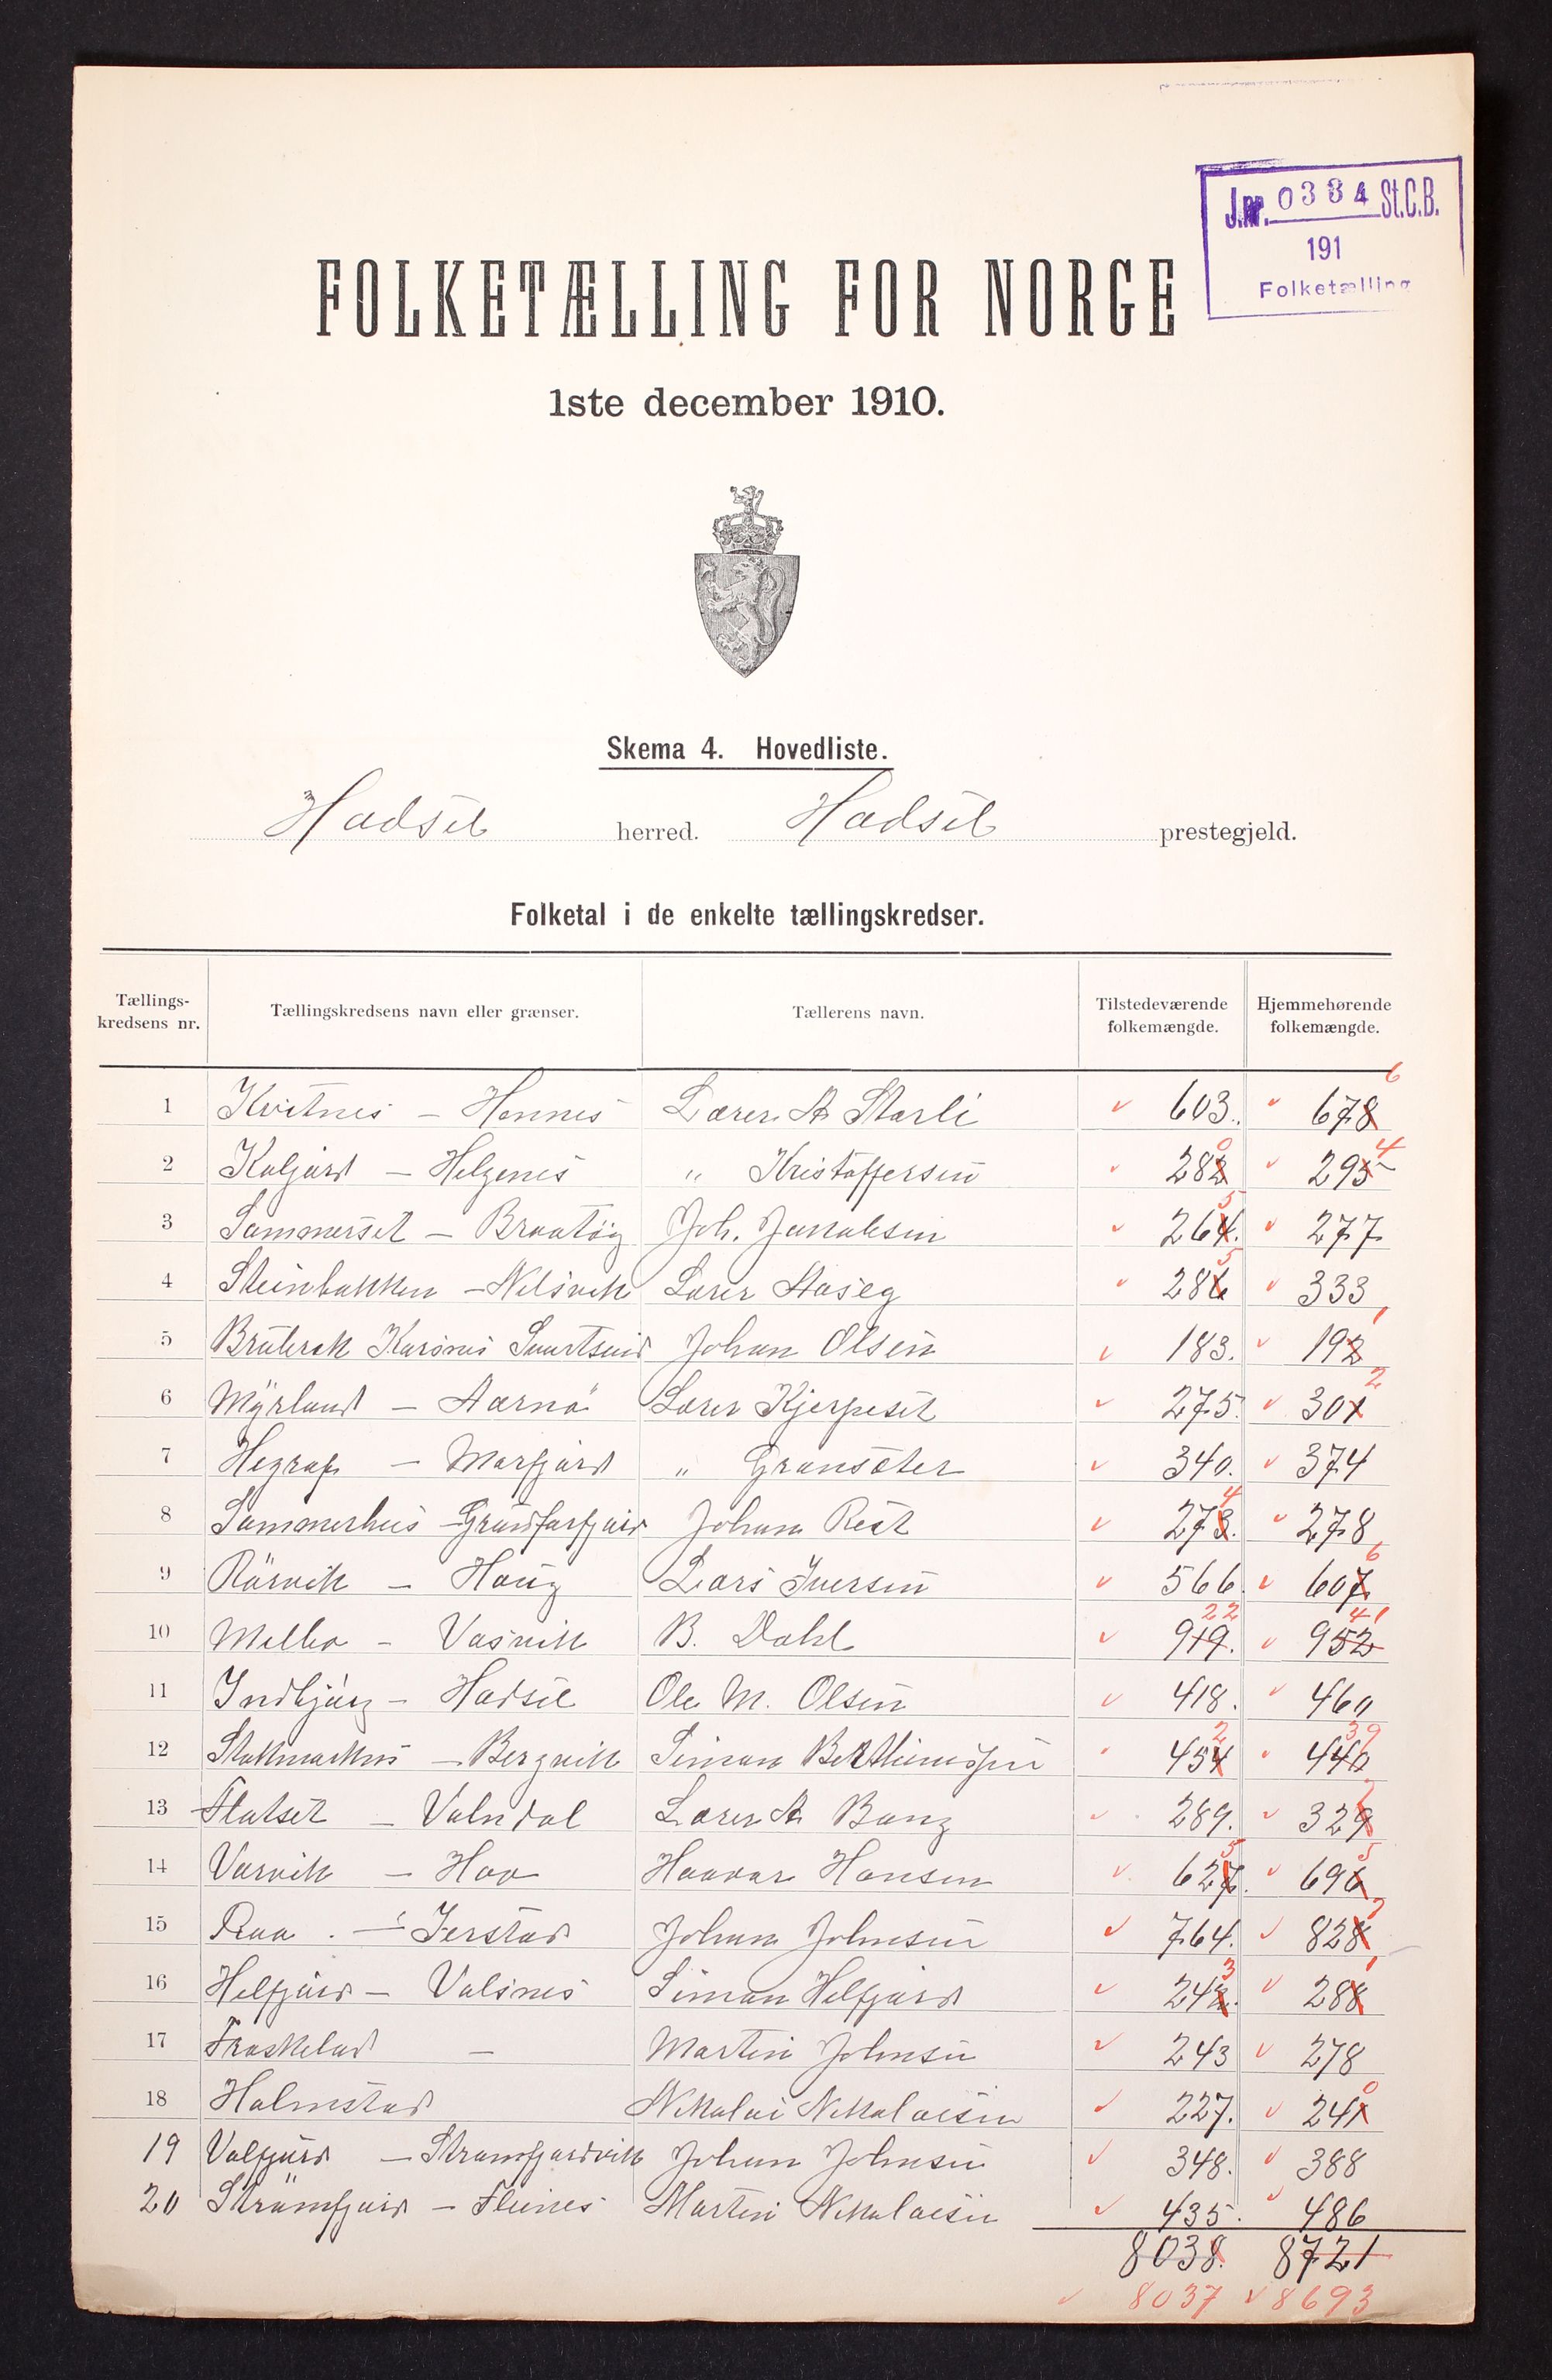 J.nr. 0334 St.C.B.
191
Folketælling
FOLKETÆLLING FOR NORGE
1ste december 1910.
Skema 4. Hovedliste.
Hadsel herred. Hadsel prestegjeld.
Folketal i de enkelte tællingskredser.
Tællings-kredsens nr. Tællingskredsens navn eller grænser. Tællerens navn. Tilstedeværende folkemængde. Hjemmehørende folkemængde.
1 Kvitnes - Hennes Lærer A Storli 603. 678 6
2 Kaljord - Helgenes " Kristoffersen 282 0 295 4
3 Sommerset - Braatög Joh. Jakobsen 264. 5 277
4 Steinbakken - Nilsvik Lærer Aaseg 286 5 333
5 Johan Olsen 183. 192 1
6 Myrland - Aarnö Lærer Kjerpeset 275. 301 2
7 - Morfjord " Gransäter 340. 374
8 Sommerhus - Grundfarfjord Johan Rist 273. 4 278
9 Rörvik - Haug Lars Iversen 566. 607 6
10 Melbo - Vasvik B. Dahl 919. 22 952 41
11 Indbjörg - Hadsel Ole M. Olsen 418. 460
12 Stokmarknes - Bergvik Simon 454 2 440 39
13 Flatset - Valndal Lærer A Bang 289. 329 7
14 Vorvik - Hov Haavar Hansen 627. 5 696 5
15 Raa - Jerstad Johan Johnsen 764. 828 7
16 Helfjord - Valsnes Simon Helfjord 242. 3 288 1
17 Froskeland - Martin Johnsen 243 278
18 Holmstad Nikolai Nikolaisen 227. 241 0
19 Valfjord - Strömfjordvik Johan Johnsen 348. 388
20 Strömfjord - Fleines Martin Nikolaisen 435. 486
8038. 8721
8037 8693